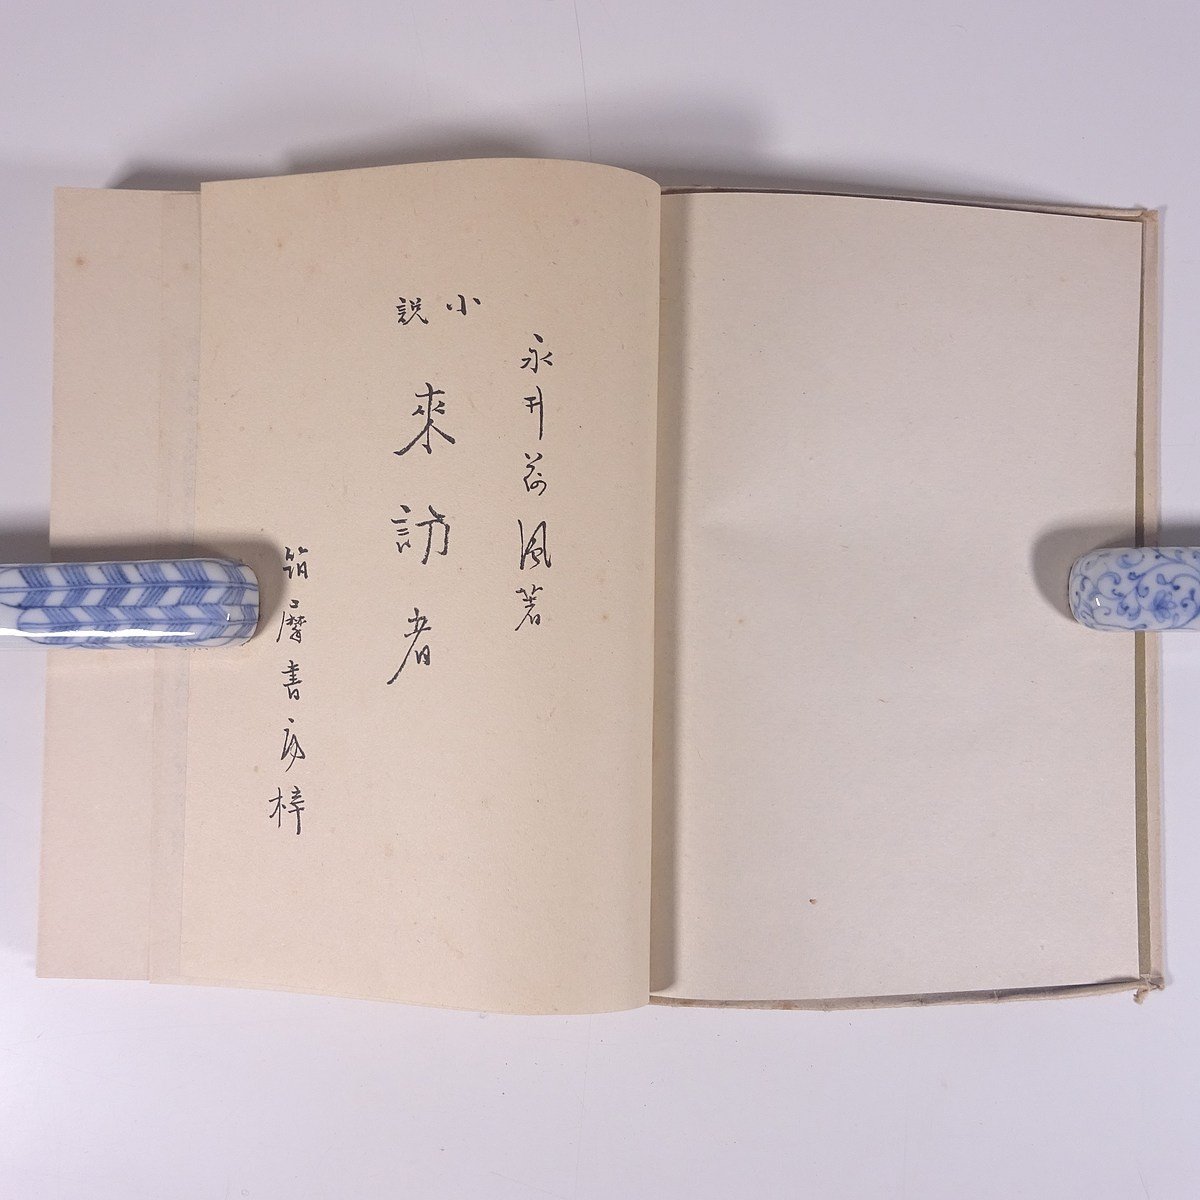 永井荷風著
小説
來訪者
筑摩書房梓